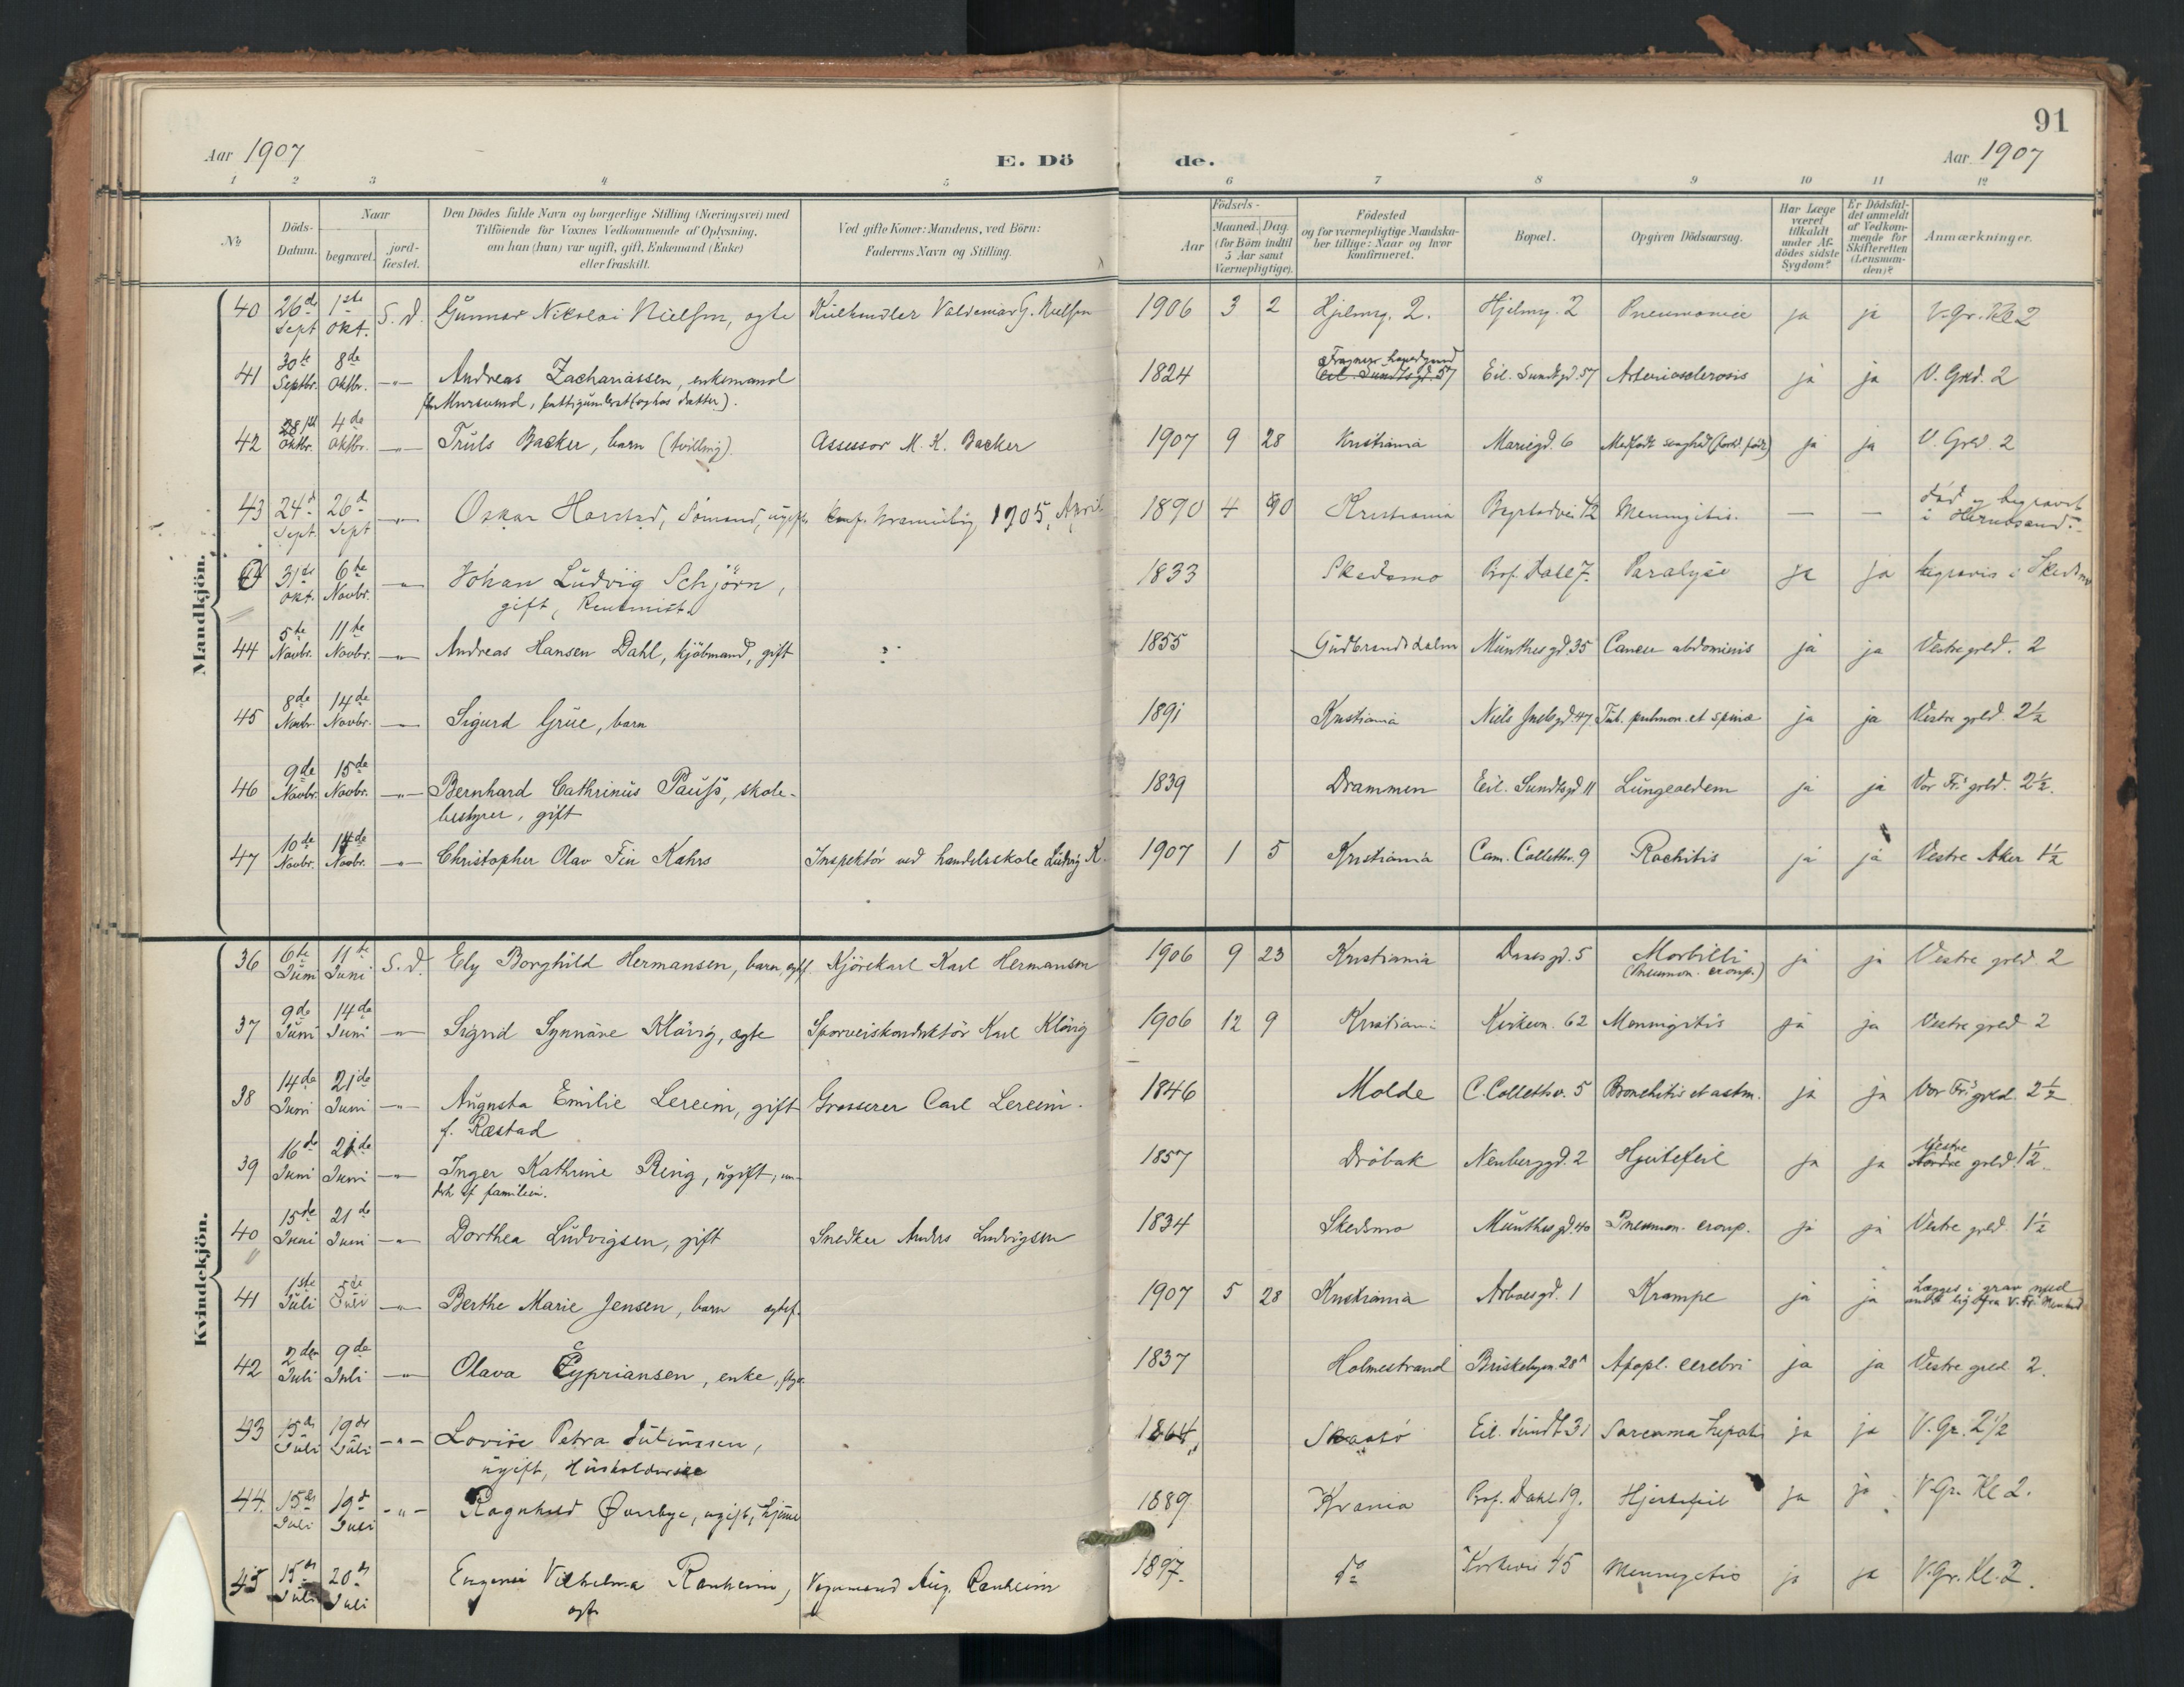 91
Aar 1907
E. Dö
de.
Aar 1907
1 2 3 4 5 6 7 8 9 10 11 12
No
Döds-
Datum.
Naar
begravet.
jord-
fæstet.
Den Dödes fulde Navn og borgerlige Stilling (Næringsvei) med
Tilföiende for Voxnes Vedkommende af Oplysning,
om han (hun) var ugift, gift, Enkemand (Enke)
eller fraskilt.
Ved gifte Koner: Mandens, ved Börn:
Faderens Navn og Stilling.
Födsels-
Aar
Maaned. Dag.
(for Börn indtil
5 Aar samt
Værnepligtige).
Födested
og for værnepligtige Mandska-
ber tillige: Naar og hvor
konfirmeret.
Bopæl.
Opgiven Dödsaarsag.
Har Læge
været
tilkaldt
under Af-
dödes sidste
Sygdom?
Er Dödsfal-
det anmeldt
af Vedkom-
mende for
Skifteretten
(Lensman-
den)?
Anmærkninger.
Mandkjön.
40 26de Sept 1ste Okt. S. d. Gunnar Nikolai Nielsen, ægte Valdemar G. Nielsen 1906 3 2 Hjelmsg. 2. Hjelmsg. 2 Pneumonie ja ja V. Gr. Kl 2
41 30te Septbr. 8de Oktbr. -"- Andreas Zachariassen, enkemand 1824 Eil. Sundtsgd. 57 Eil. Sundtgd. 57 Arteriosclerosis ja ja V. Grld. 2
fhv Murermd, (ophos datter).
42 Oktbr. 4de Oktbr. -"- Truls Backer, barn (tvilling) Assessor M. K. Backer 1907 9 28 Kristiania Mariegd. 6 Medfødt svaghed ja ja V. Grld 2
43 24de Sept. 26de Sept -"- Oskar Harstad, Sömand, ugift konf. 1905, April 1890 4 Kristiania Meningitis. — — död og begravet
i Hernösand.
31te Okt. 6te Novbr. -"- Johan Ludvig Schjörn, 1833 Skedsmo Prof. Dahl 7. Paralyse ja ja begraves i Skedsmo
gift,
44 5te Novbr. 11te Novbr. -"- Andreas Hansen Dahl, kjöbmand, gift ? 1855 Gudbrandsdalen Munthes gd. 35 Cancer abdominis ja ja Vestre grld. 2
45 8de Novbr. 14de Novbr. -"- Sigurd Grüe, barn 1891 Kristiania Niels Juels gd. 47 Tub. pulmon. et spinæ ja ja Vestre grld. 2½
46 9de Novbr. 15de Novbr. -"- Bernhard Cathrinus Pauss, skole- 1839 Drammen Eil. Sundtsgd 11 Lungeoedem ja ja Vor Fr.s grld. 2½.
bestyrer, gift
47 10de Novbr. 14de Novbr. -"- Christopher Olav Fin Kahrs Inspektör ved handelsskole Ludvig K. 1907 1 5 Kristiania Cam. Collettv. 9 Rachitis ja ja Vestre Aker 1½
Kvindekjön.
36 6te Juni 11te Juni S. d. Ely Borghild Hermansen, barn, Kjörekarl Karl Hermansen 1906 9 23 Kristiania Daas gd. 5 Morbilli ja ja Vestre grld. 2
(Pneumon. croup.)
37 9de Juni 14de Juni -"- Sigrid Synnöve Klövig, ægte Sporveiskonduktör Karl Klövig 1906 12 9 Kristiania Kirkevn. 62 Meningitis ja ja Vestre grld 2
38 14de Juni 21de Juni -"- Augusta Emilie Lereim, gift Grosserer Carl Lereim. 1846 Molde C. Collettsv. 5 Bronchitis et astm. ja ja Vor Fr.s grld. 2½
f. Ræstad
39 16de Juni 21de Juni -"- Inger Kathrine Ring, ugift, un- 1857 Dröbak Neuberggd. 2 Hjertefeil ja ja Vestre Nordre grld. 1½.
drh af familien.
40 15de Juni 21de Juni -"- Dorthea Ludvigsen, gift Snedker Anders Ludvigsen 1834 Skedsmo Munthes gd. 40 Pneumon. croup. ja ja Vestre grld. 1½
41 1ste Juli 5de Juli -"- Berthe Marie Jensen, barn 1907 5 28 Kristiania Arboes gd. 1 Krampe ja ja Lægges i grav med
andet lig fra V. Fr.
42 2den Juli 9de Juli -"- Olava Cypriansen, enke, 1837 Holmestrand Briskebyvn. 28A Apopl. cerebri ja ja Vestre grld 2.
43 15de Juli 19de Juli -"- Lovise Petra Julinssen, 1864 Skaatö Eil. Sundt 31 Sarcoma hepatis ja ja V. Gr. 2½
ugift, Husholderske
44. 15de Juli 19de Juli -"- Ragnhild Øverbye, ugift, hjeme 1889 Krania Prof. Dahl 19. Hjertefeil ja ja V. Gr. Kl 2.
45 15de Juli 20de Juli Eugenie Vilhelma Ranheim, Vognmand Aug. Ranheim 1897. do Kirkevei 45 Meningitis ja ja V. Gr. Kl. 2.